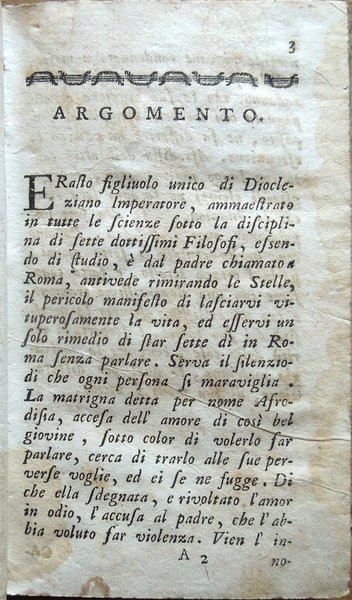 3
ARGOMENTO.
ERasto figliuolo unico di Diocle-
ziano Imperatore, ammaestrato
in tutte le scienze sotto la discipli-
na di sette dottissimi Filosofi, essen-
do di studio, è dal padre chiamato a
Roma, antivede rimirando le Stelle,
il pericolo manifesto di lasciarvi vi-
tuperosamente la vita, ed esservi un
solo rimedio di star sette dì in Ro-
ma senza parlare. Serva il silenzio
di che ogni persona si maraviglia.
La matrigna detta per nome Afro-
disia, accesa dell' amore di così bel
giovine, sotto color di volerlo far
parlare, cerca di trarlo alle sue per-
verse voglie, ed ei se ne fugge. Di
che ella sdegnata, e rivoltato l'amor
in odio, l'accusa al padre, che l'ab-
bia voluto far violenza. Vien l' in-
A 2 no-